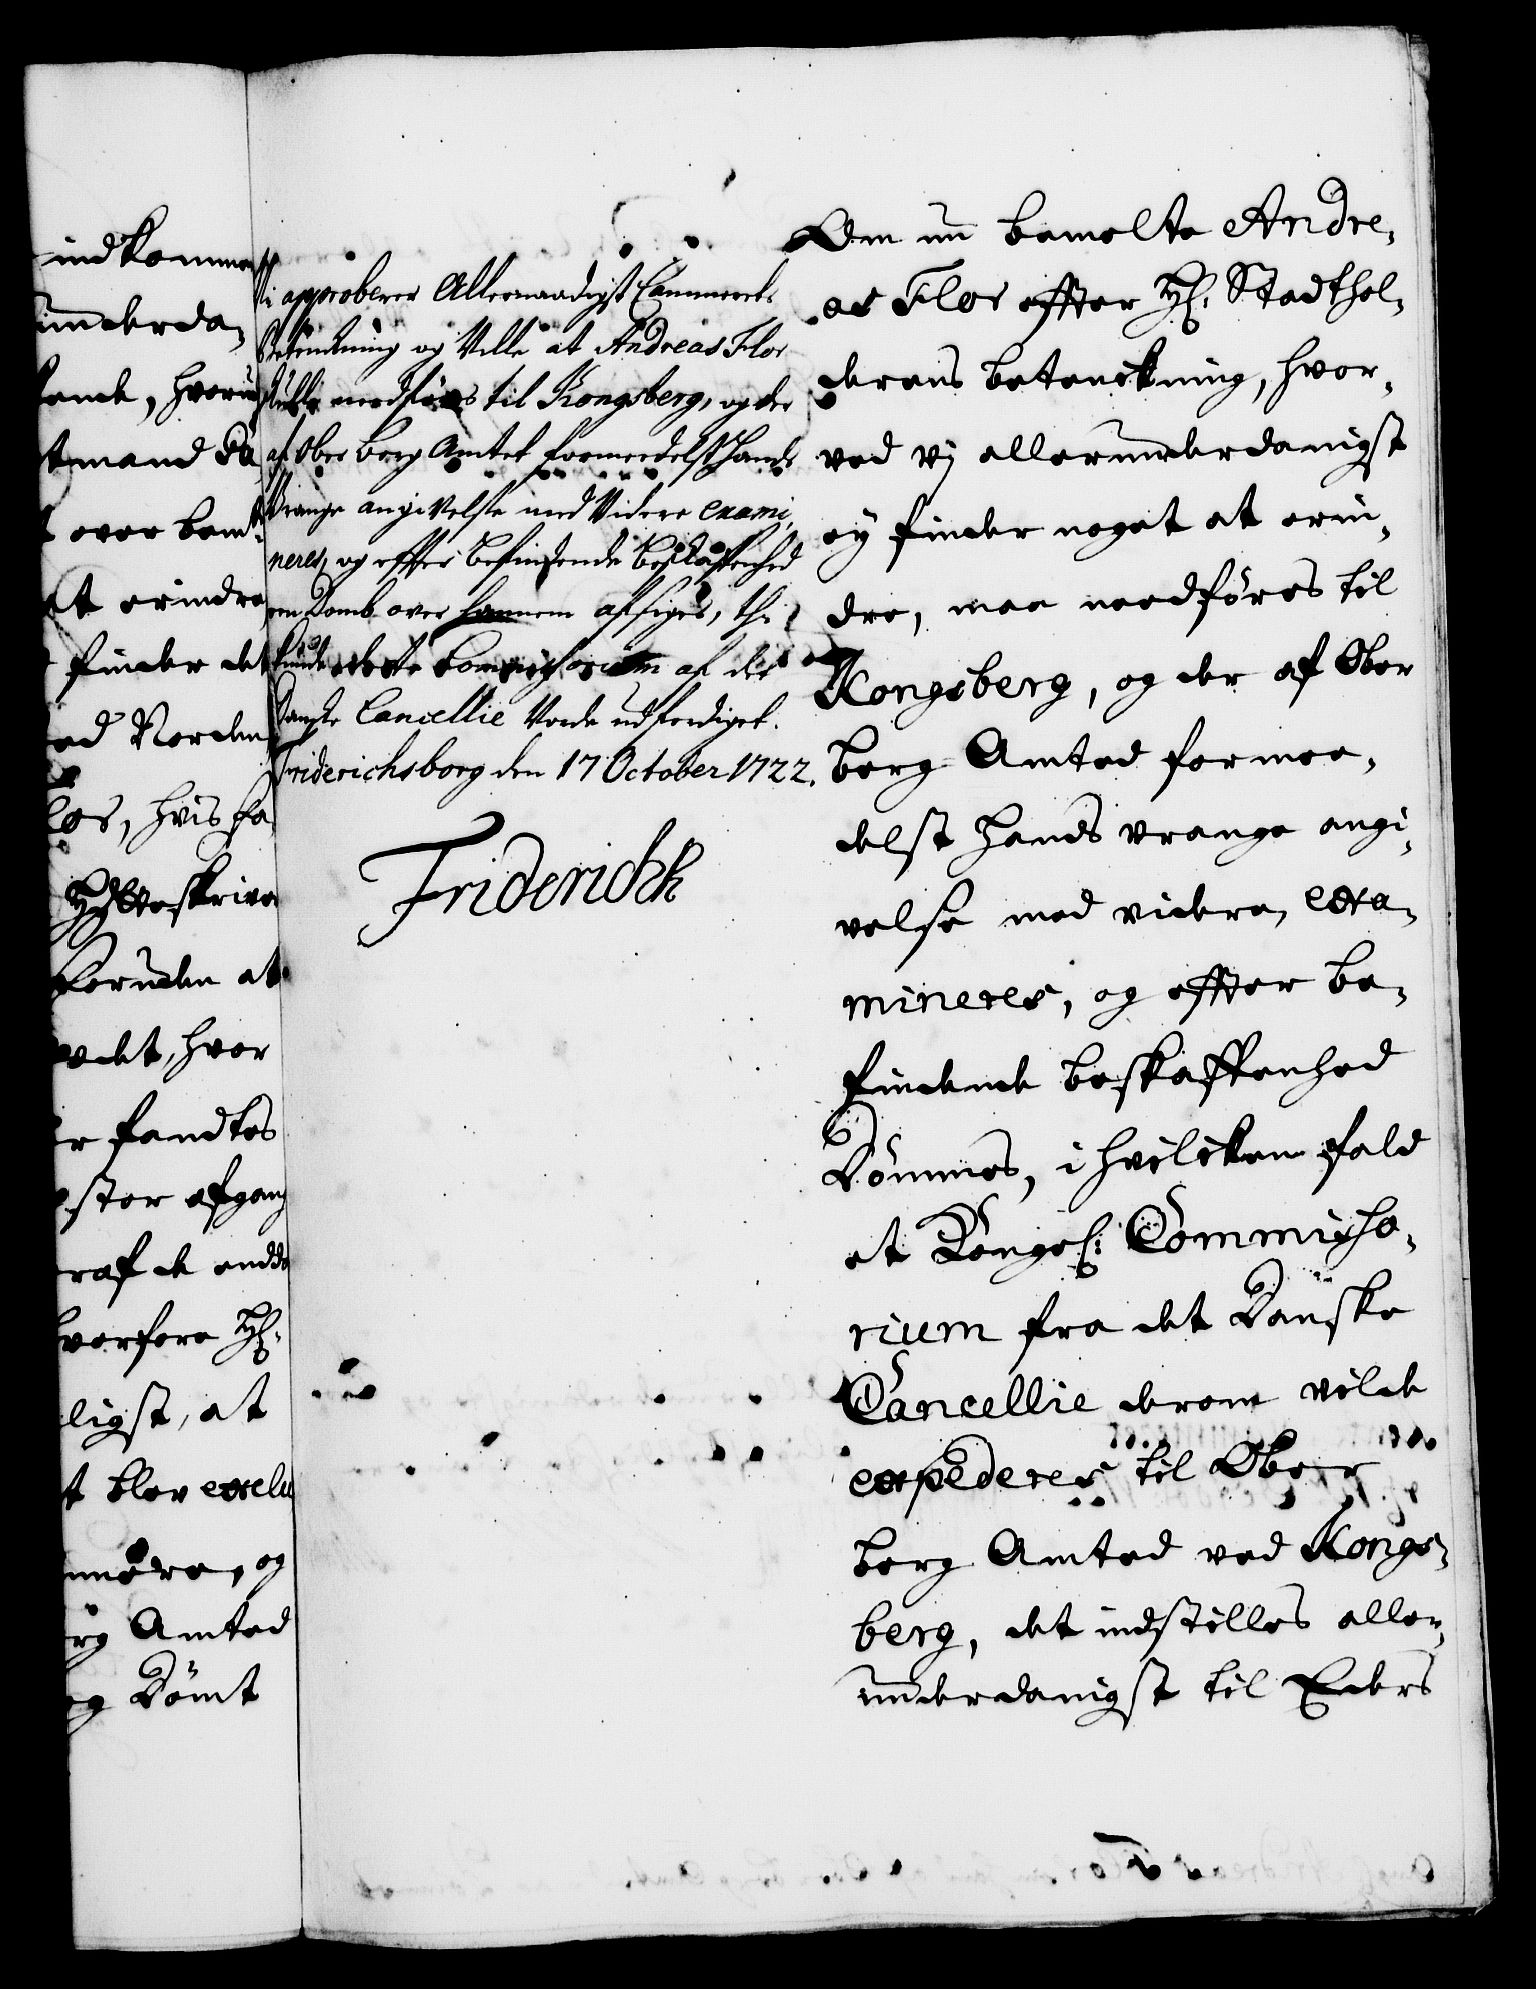 indkommen
underda-
ende, hvorud
tmand da
t over bem:te
t erindre
finder det
ad Norden
los, hvis fa
Hÿtteskriver
foruden at
edet, hvor
r fandtes
stor afgang
raf de endda
hvorfore Hr:
ligst, at
t blev exclu
og
rg Amted
og Dömt
Vi approberer Allernaadigst Cammerets
Betenckning og Ville at Andreas Flor
skulle nedføres til Kongsberg, og der
af Ober Berg Amtet formedelst hands
Vrange angivelse med Videre exami,
neres, og effter befindende beskaffenhed
en Domb over hannem afsiges, thi
kunde Commissorium af det
Danske Cancellie Vorde udferdiget.
Friderichsborg den 17 October 1722.
Friderich
Om nu bemelte Andre,
as Flor effter Hr: Stadthol,
derens betenckning, hvor,
ved vj allerunderdanigst
ey finder noget at erin,
dre, maa needföres til
Kongsberg, og der af Ober
berg Amted formee,
delst hands vrange angi,
velse med videre, exa,
mineres, og effter be,
findende beskaffenhed
Dömmes, i hvilcken fald
et Kongel: Commisso,
rium fra det Danske
Cancellie derom vilde
expederes til Ober
berg Amted ved Kongs,
berg, det indstilles aller,
underdanigst til Eders